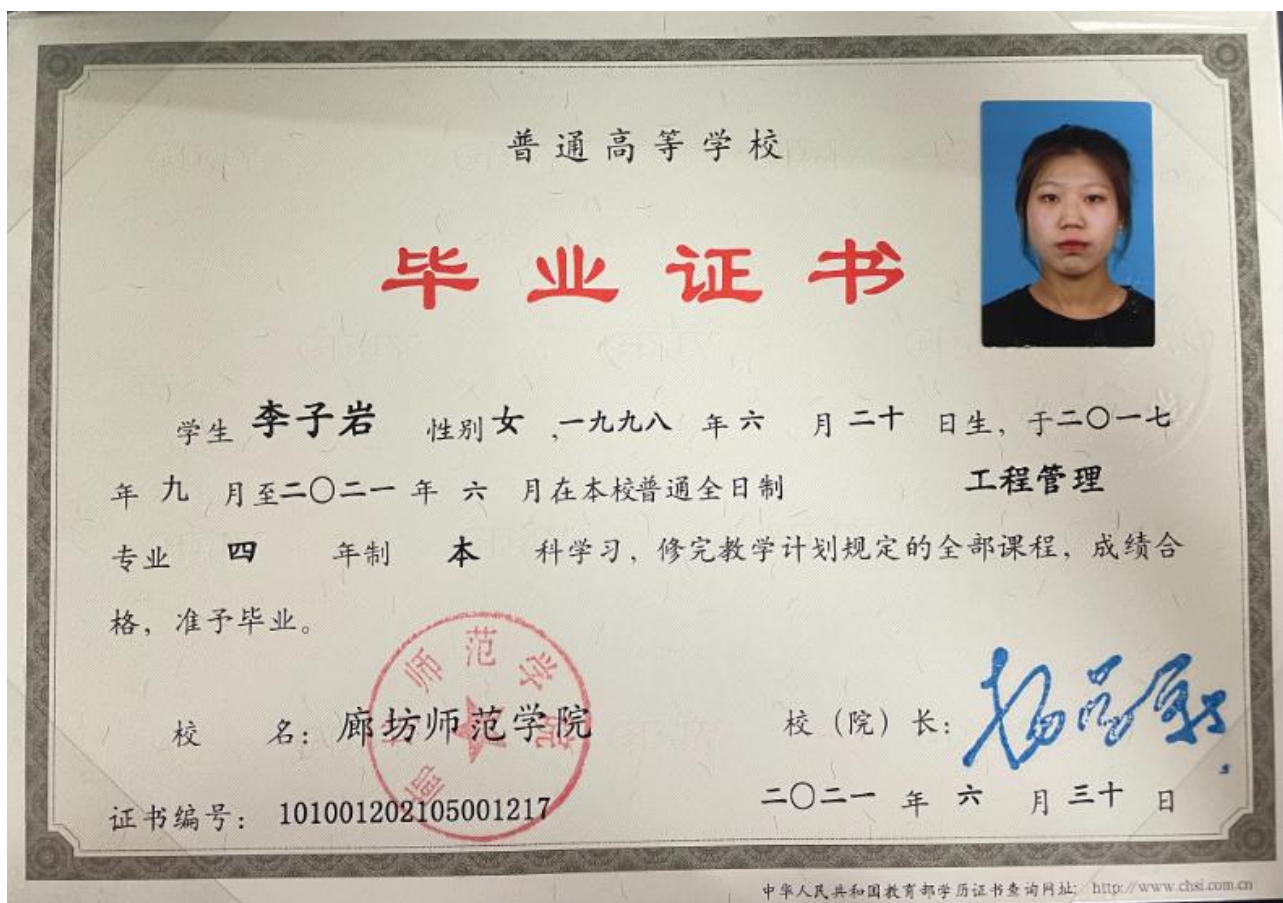 普通高等学校
毕业证书
学生 李子岩 性别 女 ,一九九八 年 六 月 二十 日生，于二〇一七
年 九 月至二〇二一 年 六 月在本校普通全日制 工程管理
专业 四 年制 本 科学习，修完教学计划规定的全部课程，成绩合
格，准予毕业。
校 名：廊坊师范学院
校（院）长：
廊坊师范学院
证书编号：101001202105001217
二〇二一 年 六 月 三十 日
中华人民共和国教育部学历证书查询网址：http://www.chsi.com.cn